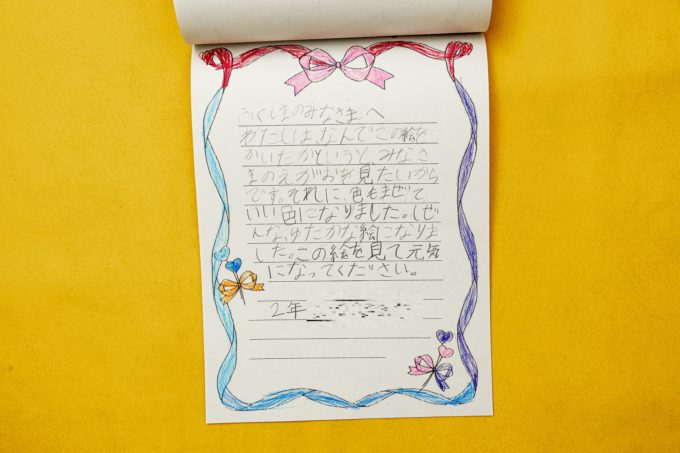 ふくしまのみなさまへ
わたしは、なんでこの絵を
かいたかというと、みなさ
まのえがおを見たいから
です。それに、色もまぜて
いい色になりました。しぜ
んな、ゆたかな絵になりま
した。この絵を見て元気
になってください。
2年